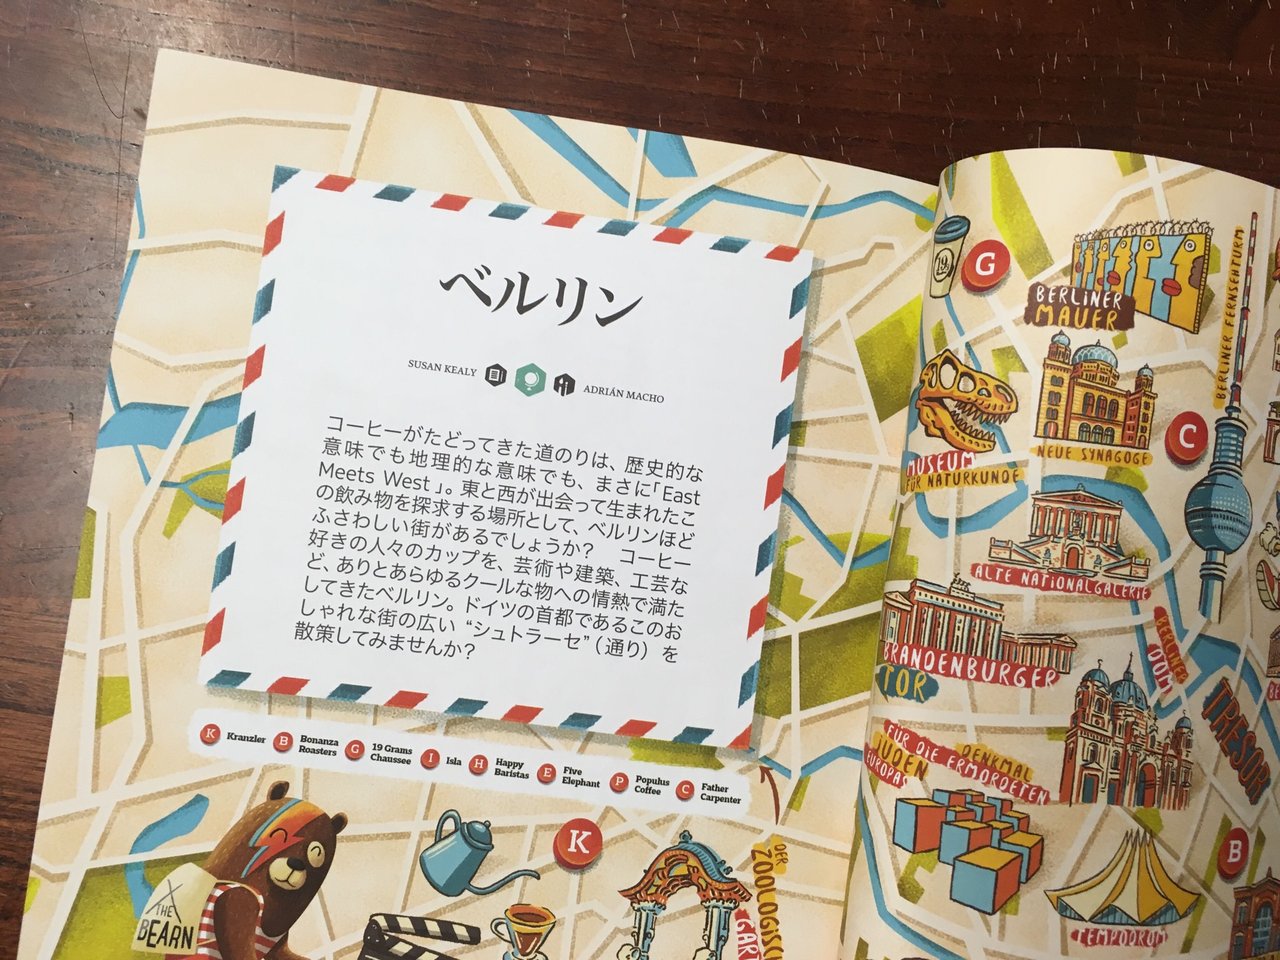 ベルリン
SUSAN KEALY
ADRIÁN MACHO
コーヒーがたどってきた道のりは、歴史的な
意味でも地理的な意味でも、まさに「East
Meets West」。東と西が出会って生まれたこ
の飲み物を探求する場所として、ベルリンほど
ふさわしい街があるでしょうか？　コーヒー
好きの人々のカップを、芸術や建築、工芸な
ど、ありとあらゆるクールな物への情熱で満た
してきたベルリン。ドイツの首都であるこのお
しゃれな街の広い “シュトラーセ”（通り）を
散策してみませんか？
K Kranzler
B Bonanza
Roasters
G 19 Grams
Chaussee
I Isla
H Happy
Baristas
E Five
Elephant
P Populus
Coffee
C Father
Carpenter
K
THE
BEARN
DER
ZOOLOGISCHE
GART
19
G
BERLINER
MAUER
BERLINER FERNSEHTURM
C
NEUE SYNAGOGE
MUSEUM
FÜR NATURKUNDE
ALTE NATIONALGALERIE
BRANDENBURGER
TOR
BERLINER
DOM
TRESOR
DENKMAL
FÜR DIE ERMORDETEN
JUDEN
EUROPAS
B
TEMPODROM